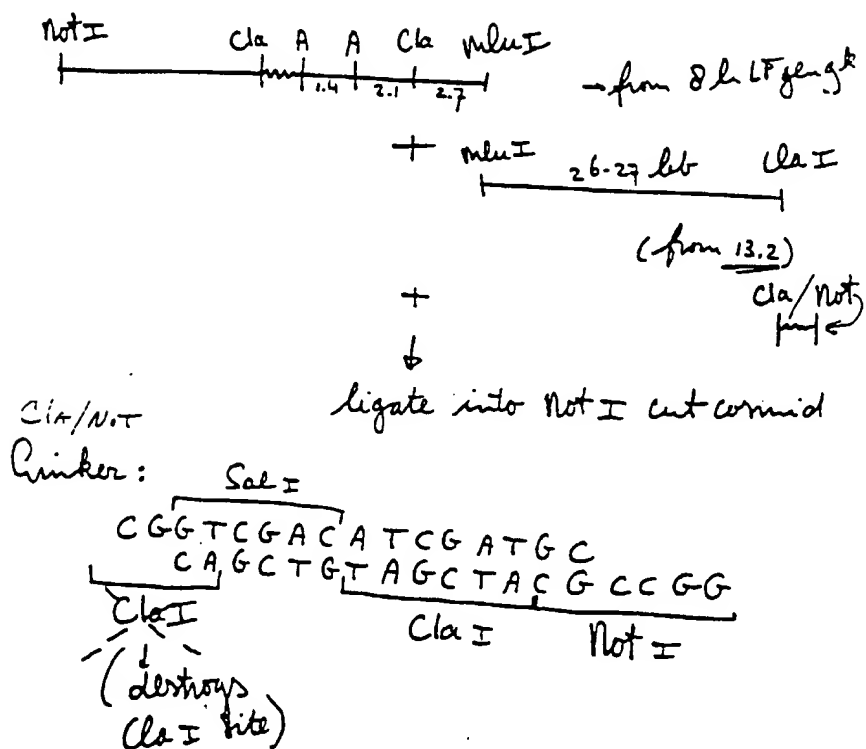 Not I
Cla A A Cla mlu I
1.4 2.1 2.7
→ from 8 kb LF
+
mlu I 26-27 kb Cla I
(from 13.2)
Cla/Not
+
ligate into Not I cut cosmid
Cla/Not
Linker:
Sal I
C G G T C G A C A T C G A T G C
C A G C T G T A G C T A C G C C G G
Cla I
Cla I Not I
(destroys
Cla I site)